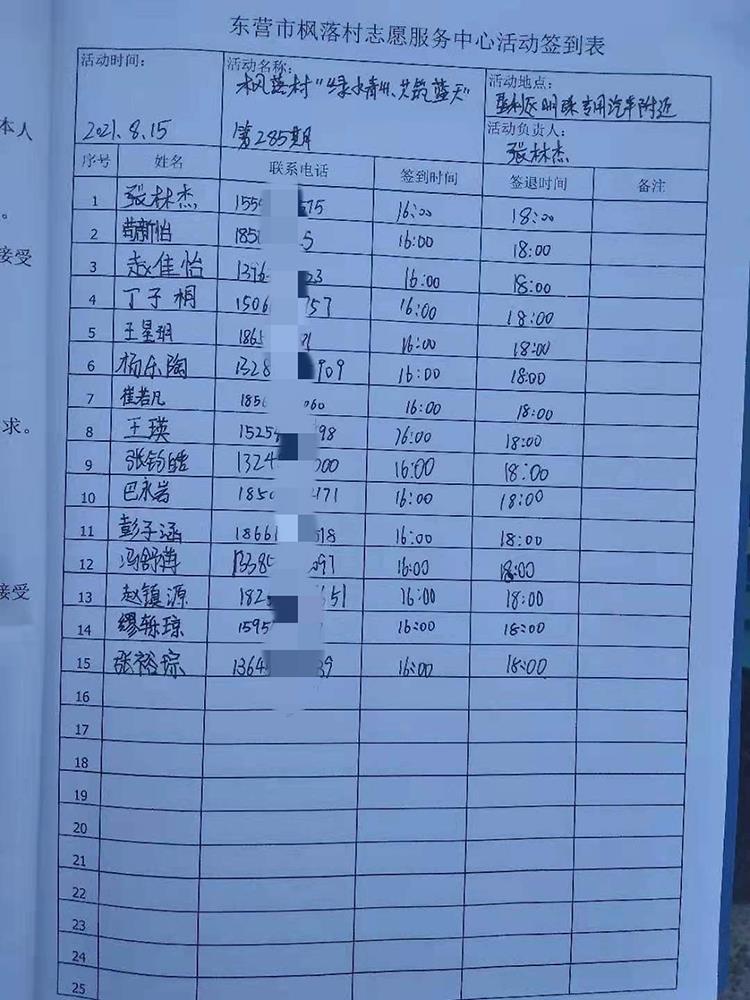 东营市枫落村志愿服务中心活动签到表
活动时间:
2021.8.15
活动名称:
枫落村"绿水青山、共筑蓝天"
第285期
活动地点:
垦利区明珠专用汽车附近
活动负责人:
张林杰
序号 姓名 联系电话 签到时间 签退时间 备注
1 张林杰 155 575 16:00 18:00
2 苟新怡 185 5 16:00 18:00
3 赵佳怡 1376 23 16:00 18:00
4 丁子桐 1506 157 16:00 18:00
5 王星玥 1865 16:00 18:00
6 杨乐陶 1328 909 16:00 18:00
7 崔若凡 185 060 16:00 18:00
8 王瑛 1525 98 16:00 18:00
9 张钧皓 1324 000 16:00 18:00
10 巴永岩 1850 171 16:00 18:00
11 彭子涵 1866 18 16:00 18:00
12 冯舒 1338 97 16:00 18:00
13 赵镇源 182 651 16:00 18:00
14 缪铄琼 1595 16:00 18:00
15 张裕琮 1364 39 16:00 18:00
16
17
18
19
20
21
22
23
24
25
本人
。
接受
求。
接受